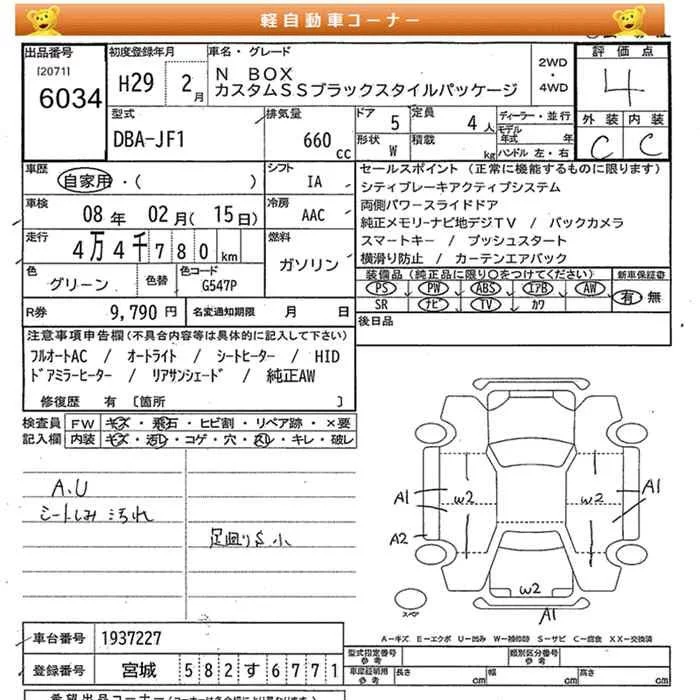 軽自動車コーナー
出品番号
[2071]
6034
初度登録年月
H29 2月
車名・グレード
N BOX
カスタムSSブラックスタイルパッケージ
2WD
・
4WD
評価点
4
外装 内装
C C
型式
DBA-JF1
排気量
660 cc
ドア 5
定員 4人
形状 W
積載 kg
ディーラー・並行
モデル年式 年
ハンドル 左・右
車歴
自家用・( )
シフト
IA
車検
08年 02月(15日)
冷房
AAC
走行
4万4千780km
燃料
ガソリン
色
グリーン
色替
色コード
G547P
R券 9,790円
名変通知期限 月 日
セールスポイント (正常に機能するものに限ります)
シティブレーキアクティブシステム
両側パワースライドドア
純正メモリーナビ地デジTV / バックカメラ
スマートキー / プッシュスタート
横滑り防止 / カーテンエアバック
装備品(純正品に限り○をつけてください)
新車保証書
PS PW ABS エアB AW
有・無
SR ナビ TV カワ
後日品
注意事項申告欄(不具合内容等は具体的に記入して下さい)
フルオートAC / オートライト / シートヒーター / HID
ドアミラーヒーター / リアサンシェード / 純正AW
修復歴 有〔箇所 〕
検査員記入欄
FW キズ・飛石・ヒビ割・リペア跡・×要
内装 キズ・汚レ・コゲ・穴・スレ・キレ・破レ
A.U
シートしみ 汚れ
足廻りS小
A1 w2 w2 A1
A2
w2
A1
スペア
A―キズ E―エクボ U―凹み W―補修跡 S―サビ C―腐食 XX―交換済
車台番号 1937227
登録番号 宮城 582す6771
型式指定番号 参考
類別区分番号 参考
車庫証明用 参考 長さ cm 幅 cm 高さ cm
希望出品コーナー